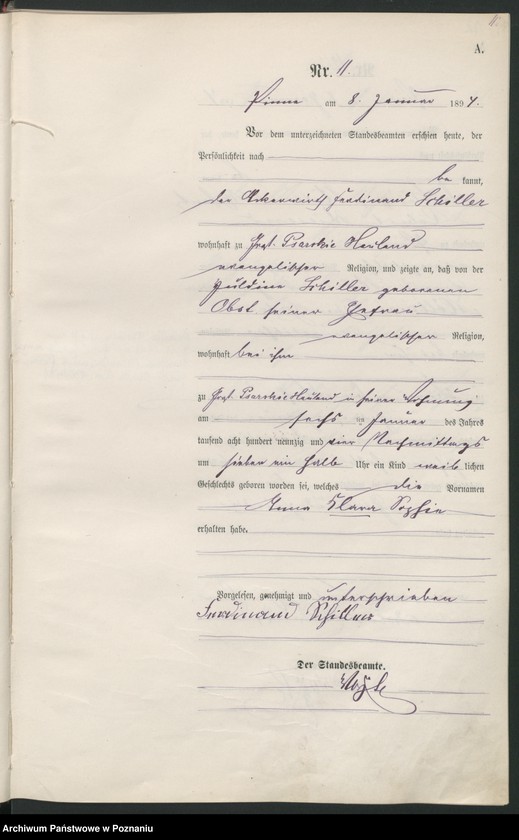 11.
A.
Nr. 11.
Pinne am 8. Januar 1894.
Vor dem unterzeichneten Standesbeamten erschien heute, der
Persönlichkeit nach
be kannt,
der Ackerwirth Ferdinand Schiller
wohnhaft zu Hauland
evangelischer Religion, und zeigte an, daß von der
Schiller geborenen
Obst seiner Ehefrau
evangelischer Religion,
wohnhaft bei ihm
zu Hauland in seiner Wohnung
am sechsten Januar des Jahres
tausend acht hundert neunzig und vier Nachmittags
um sieben ein halb Uhr ein Kind weib lichen
Geschlechts geboren worden sei, welches die Vornamen
Anna Klara Sophie
erhalten habe.
Vorgelesen, genehmigt und unterschrieben
Ferdinand Schiller
Der Standesbeamte.
Archiwum Państwowe w Poznaniu